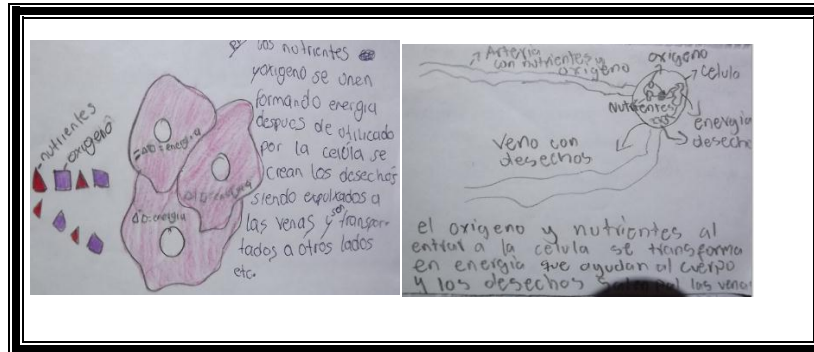 nutrientes
oxigeno
R/ Los nutrientes
y oxigeno se unen
formando energia
despues de utilicado
por la celúla se
crean los desechos
siendo expulxados a
las venas y son transpor-
tados a otros lados
etc.
=ΔD=energia
ΔD=energia
ΔD=energia
Arteria
con nutrientes y
oxigeno
oxigeno
Celula
Nutrientes
energia
desecho
Veno con
desechos
el oxigeno y nutrientes al
entrar a la celula se transforma
en energia que ayudan al cuerpo
y los desechos salen por las venas